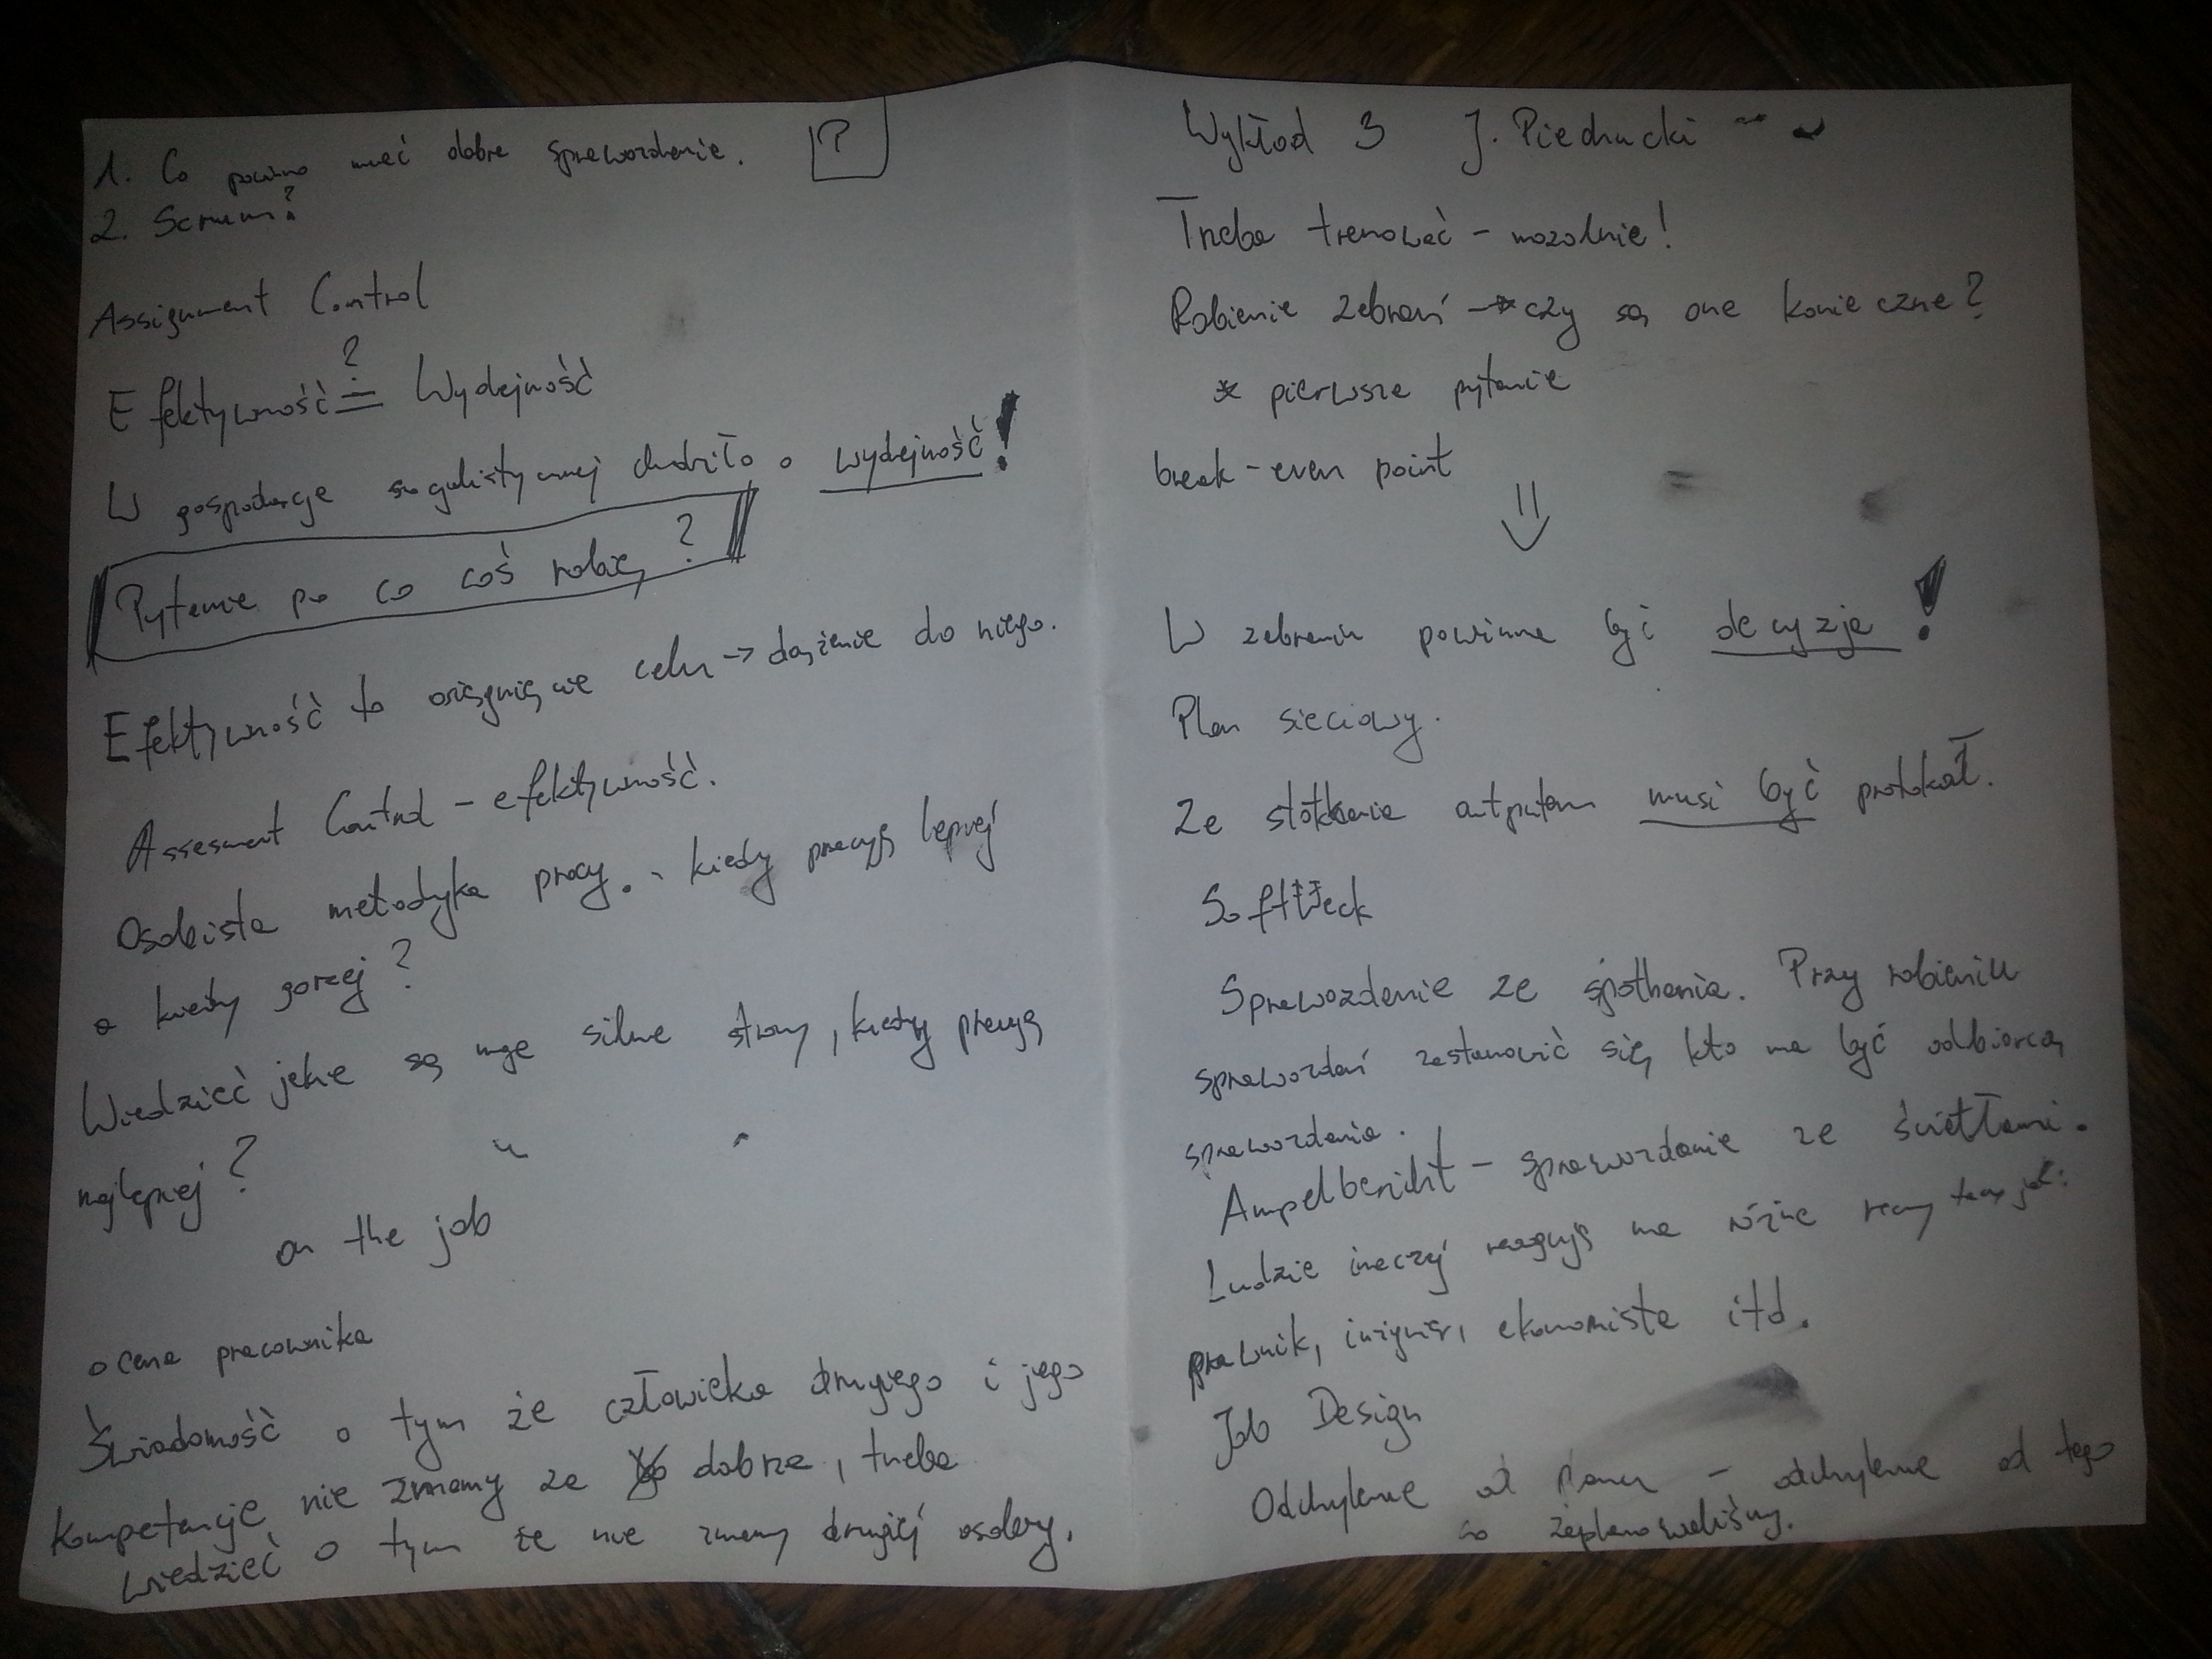 1. Co powinno mieć dobre sprawozdanie. ?
2. Scrum?
Assigument Control
Efektywność ?= Wydajność
W gospodarce chodziło o wydajność!
Pytanie po co coś robię?
Efektywność to osiągnięcie celu -> dążenie do niego.
Assesment Control - efektywność.
Osobista metodyka pracy. kiedy pracuję lepiej
a kiedy gorzej?
Wiedzieć jakie są moje silne strony, kiedy pracuję
najlepiej?
on the job
ocena pracownika
Świadomość o tym że człowieka drugiego i jego
kompetencje nie znamy za dobrze, trzeba
wiedzieć o tym że nie znamy drugiej osoby.
Wykład 3 J.
Trzeba trenować - mozolnie!
Robienie zebrań -> czy są one konieczne?
* pierwsze pytanie
break-even point
⇓
W zebraniu powinna być decyzja!
Plan sieciowy.
Ze outputem musi być protokół.
Sprawozdanie ze spotkania. Przy robieniu
sprawozdań zastanowić się kto ma być odbiorcą
sprawozdania.
Ampelbericht - sprawozdanie ze światłami.
Ludzie inaczej reagują na różne
prawnik, inżynier, ekonomista itd.
Job Design
Odchylenie od planu - odchylenie od tego
co zaplanowaliśmy.